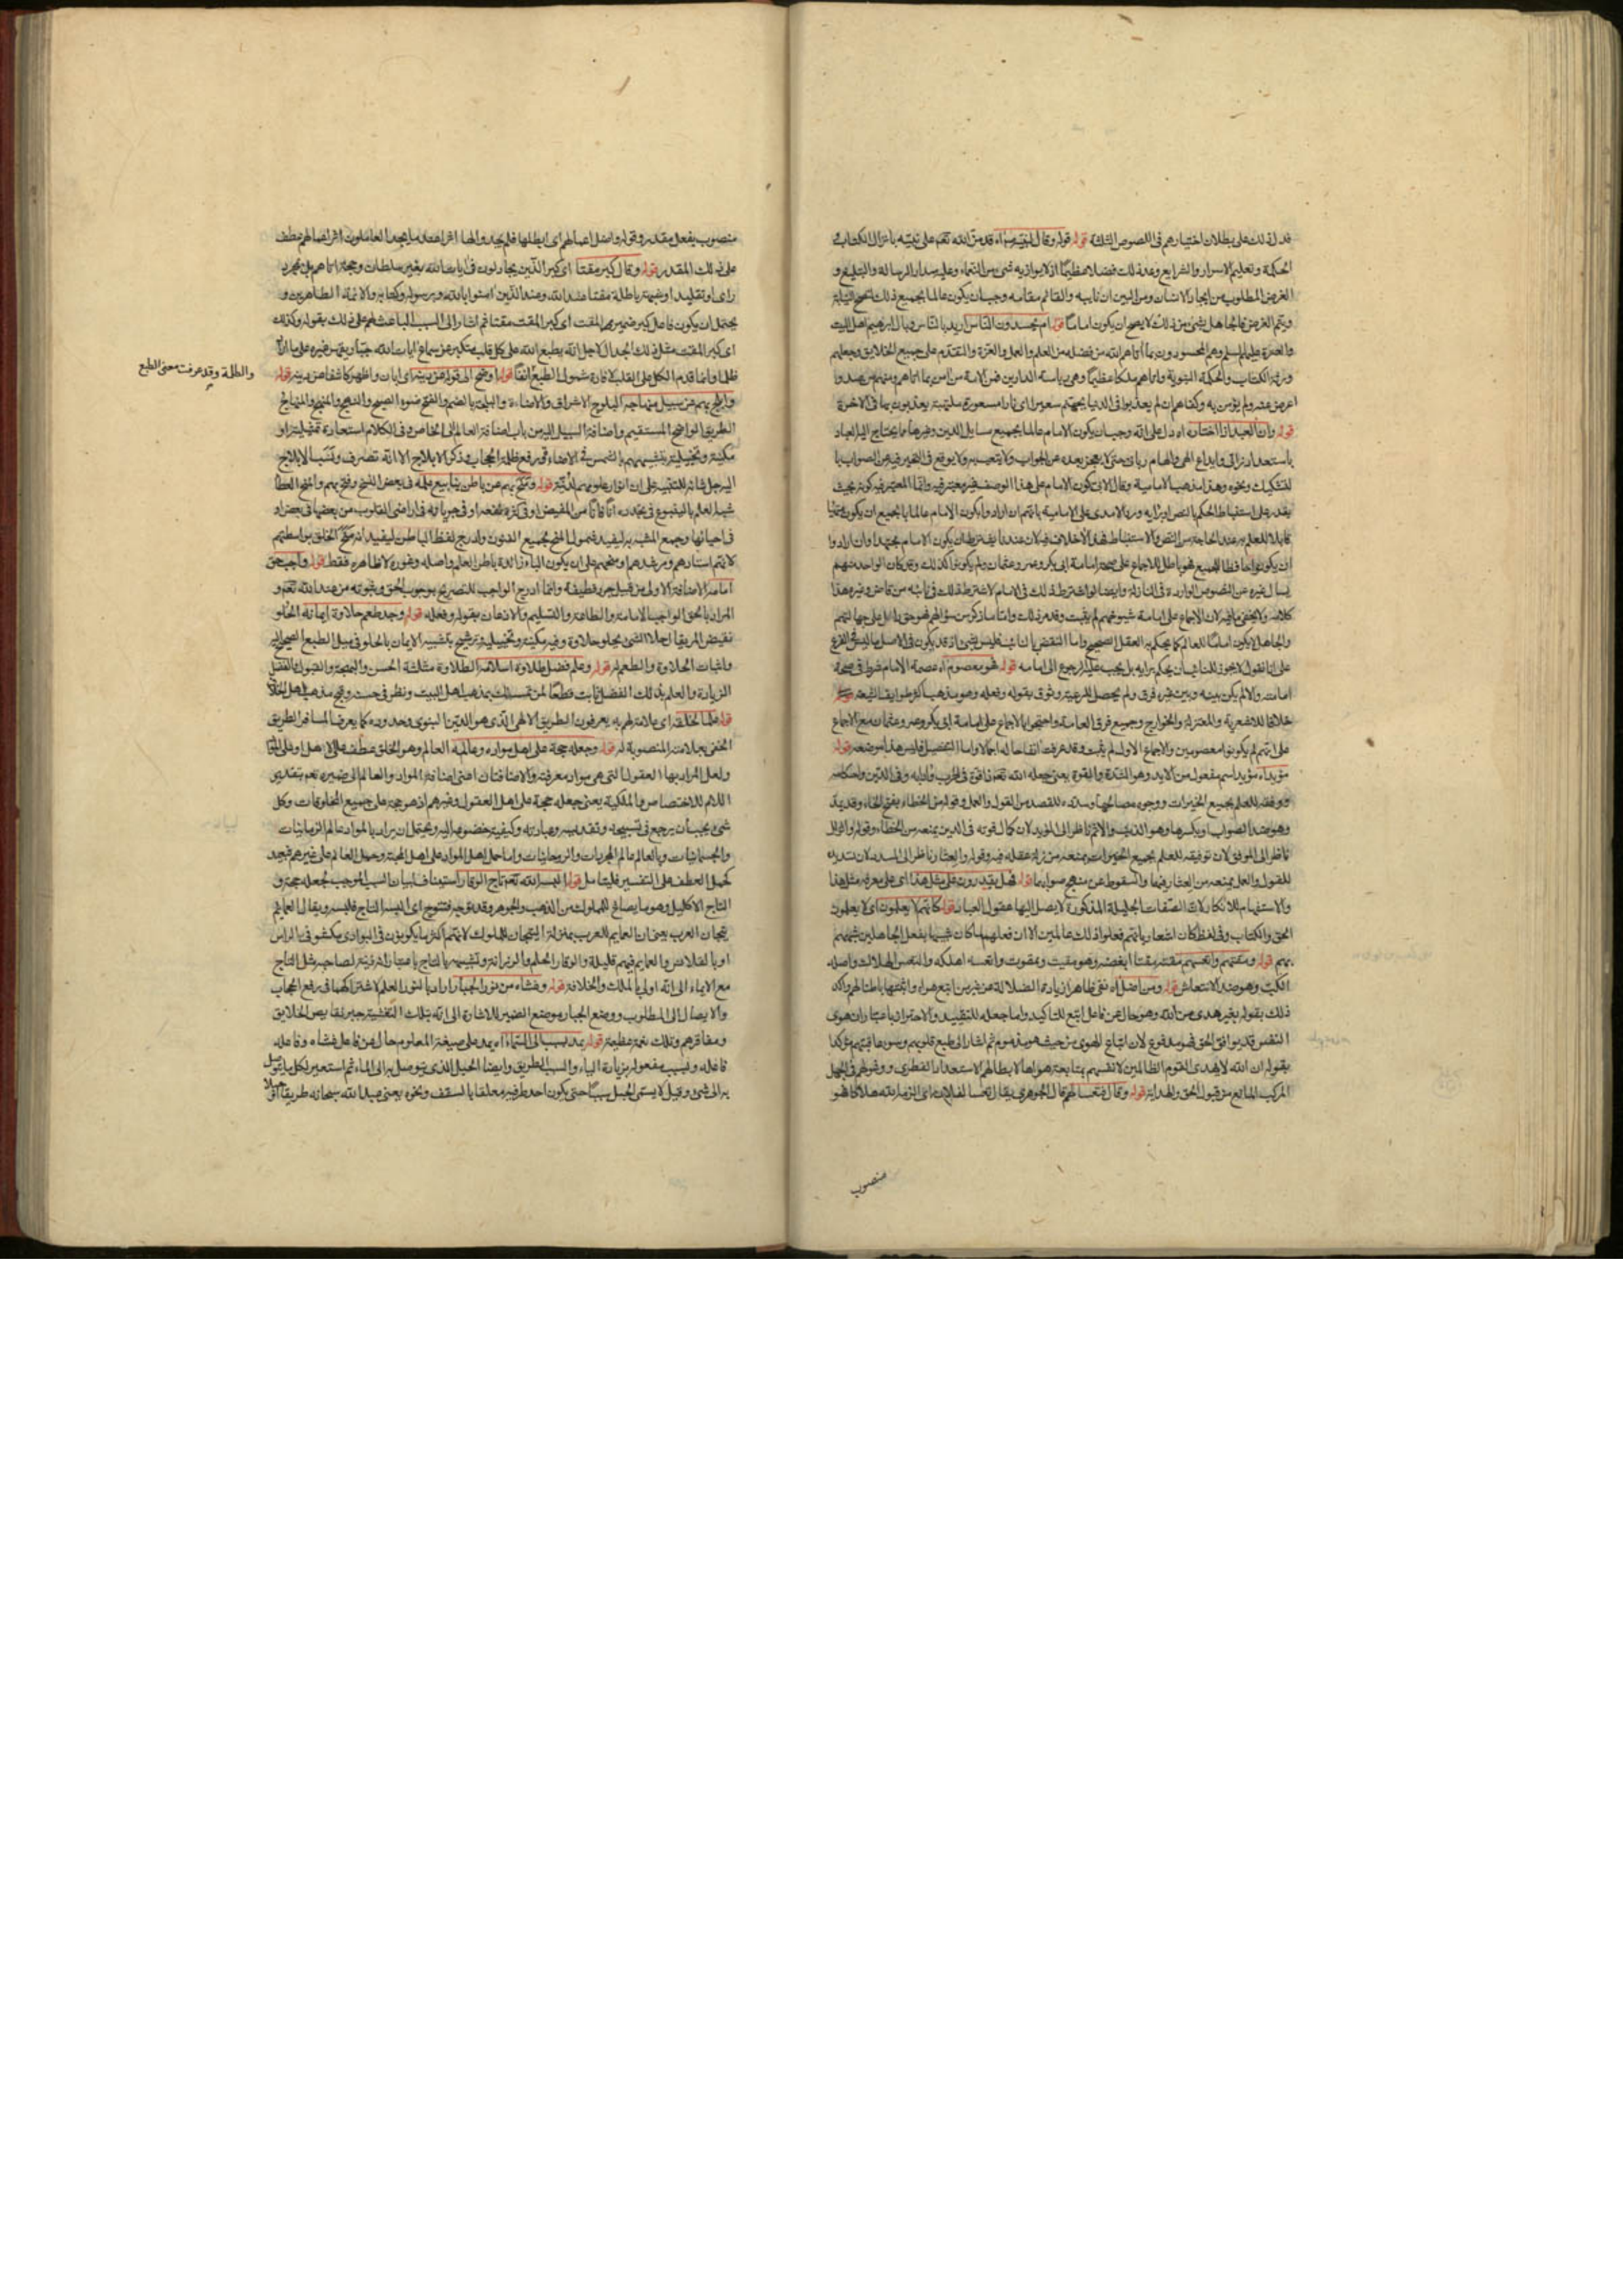 فدل ذلك على بطلان اختيارهم فى النصوص الثلثة قوله وقال لنبيه اه قد من الله تعم على نبيه بانزال الكتاب و
الحكمة وتعليم الاسرار والشرايع وعد ذلك فضلا عظيما اذ لا يوازيه شئ من النعماء وعليه مدار الرسالة والتبليغ و
الغرض المطلوب من ايجاد الانسان ومن البين ان نايبه والقائم مقامه وجب ان يكون عالما بجميع ذلك
ويتم الغرض فالجاهل بشئ من ذلك لا يصح ان يكون اماما قوله ام يحسدون الناس اريد بالناس وبال ابرهيم اهل البيت
والعترة عليهم السلم وهم المحسودون بما اتاهم الله من فضله من العلم والعمل والعزة والتقدم على جميع الخلايق وجعلهم
ورثة الكتاب والحكمة النبوية واتاهم ملكا عظيما وهى رياسة الدارين فمن الامة من امن بما اتاهم ومنهم من صد و
اعرض عنه ولم يؤمن به وكفاهم ان لم يعذبوا فى الدنيا بجهنم سعيرا اى نارا مسعورة ملتهبة يعذبون بها فى الاخرة
قوله وان العبد اذا اختاره اه دل على انه وجب ان يكون الامام عالما بجميع مسايل الدين وغيرها مما يحتاج اليه العباد
باستعداد ذاتى وايداع الهى والهام ربانى حتى لا يعجز بعده عن الجواب ولا يتحير ولا يوقع فى التحير فيه عن الصواب
لتشكيك ونحوه وهذا مذهب الامامية وقال الابى كون الامام على هذا الوصف غير معتبر فيه وانما المعتبر فيه كونه بحيث
يقدر على استنباط الحكم بالنص اورد الامدى على الامامية بانهم ان ارادوا بكون الامام عالما بالجميع ان يكون
قابلا للعلم به عند الحاجة من النص والاستنباط فهذا لا خلاف فيه لان عندنا يشترط ان يكون الامام مجتهدا وان ارادوا
ان يكون حافظا للجميع فهو باطل للاجماع على صحة امامة ابى بكر وعمر وعثمان ولم يكونوا كذلك وقد كان الواحد منهم
يسال غيره عن النصوص الواردة فى النازلة وايضا لو اشترط ذلك فى الامام لاشترط ذلك فى نائبه من قاض وغيره هذا
كلامه ولا يخفى ما فيه لان الاجماع على امامة شيوخهم لم يثبت وقد مر ذلك واما ما ذكر من سؤالهم فهو حق دليل على جهالتهم
والجاهل لا يكون اماما للعالم كما يحكم به العقل الصحيح واما النقض بالنائب فليس بشئ اذ قد يكون فى الاصل ما ليس فى الفرع
على انا نقول لا يجوز للنائب ان يحكم برايه بل يجب عليه الرجوع الى امامه قوله فهو معصوم اه عصمة الامام شرط فى صحة
امامته والا لم يكن بينه وبين غيره فرق ولم يحصل للرعية وثوق بقوله وفعله وهو مذهب اكثر طوايف الشيعة
خلافا للاشعرية والمعتزلة والخوارج وجميع فرق العامة واحتجوا بالاجماع على امامة ابى بكر وعمر وعثمان مع الاجماع
على انهم لم يكونوا معصومين والاجماع الاول لم يثبت وقد عرفت انفا حاله اجمالا واما التفصيل فليس هذا موضعه قوله
مؤيد اه مؤيد اسم مفعول من الايد وهو الشدة والقوة يعنى جعله الله تعم ذا قوة فى الحرب وادابه وفى الدين واحكامه
ووفقه للعلم بجميع الخيرات ووجوه مصالحها وسدده للقصد من القول والعمل وقوله من الخطاء بفتح الخاء وقد يمد
وهو ضد الصواب او بكسرها وهو الذنب والاثم ناظر الى المؤيد لان كمال قوته فى الدين يمنعه من الخطاء وقوله والزلل
ناظر الى الموفق لان توفيقه للعلم بجميع الخيرات يمنعه من زلة عقله فيه وقوله والعثار ناظر الى المسدد لان تسديده
للقول والعمل يمنعه من العثار فيهما والسقوط عن منهج صوابهما قوله فهل يقدرون على مثل هذا اى على معرفة مثل هذا
والاستفهام للانكار لان الصفات الجليلة المذكورة لا يصل اليها عقول العباد قوله كانهم لا يعلمون اى لا يعلمون
الحق والكتاب وفى لفظ كان اشعار بانهم فعلوا ذلك عالمين الا ان فعلهم لما كان شبيها بفعل الجاهلين شبههم
بهم قوله ومقتهم واتعسهم مقته مقتا ابغضه وهو مقيت وممقوت واتعسه اهلكه والتعس الهلاك واصله
الكب وهو ضد الانتعاش قوله ومن اضل اه نفى ظاهرا زيادة الضلالة عن غير من اتبع هواه واثبتها باطنا لهم واكد
ذلك بقوله بغير هدى من الله وهو حال عن فاعل اتبع للتاكيد واما جعله للتقييد والاحتراز باعتبار ان هوى
النفس قد يوافق الحق فهو مدفوع لان اتباع الهوى من حيث هو مذموم ثم اشار الى طبع قلوبهم وسوء عاقبتهم مؤكدا
بقوله ان الله لا يهدى القوم الظالمين لانفسهم بمتابعة هواها لابطالهم الاستعداد الفطرى ووقوعهم فى الجهل
المركب المانع من قبول الحق والهداية قوله وقال فتعسا لهم قال الجوهرى يقال تعسا لفلان اى الزمه الله هلاكا فهو
منصوب
منصوب بفعل مقدر وقوله واضل اعمالهم اى ابطلها فلم يجدوا لها اثرا عند ما يجد العاملون اثر اعمالهم عطف
على ذلك المقدر قوله وقال كبر مقتا اى كبر الذين يجادلون فى ايات الله بغير سلطان وحجة اتاهم بل بمجرد
راى او تقليد او شبهة باطلة مقتا عند الله وعند الذين امنوا بالله وبرسوله وكتابه والائمة الطاهرين و
يحتمل ان يكون فاعل كبر ضمير المقت اى كبر المقت مقتا ثم اشار الى السبب الباعث لهم على ذلك بقوله وكذلك
اى كبر المقت مثل ذلك الجدال لاجل انه يطبع الله على كل قلب متكبر عن سماع ايات الله جبار يقهر غيره على ما اراد
ظلما وانما قدم الكل على القلب لافادة شمول الطبع انفا قوله اوضح الى قوله عن دينه اى ابان واظهر كاشفا عن دينه قوله
والظلمة وقد عرفت معنى الطبع
وابلج بهم عن سبيل منهاجه البلوج الاشراق والاضاءة والبلجة بالضم والفتح ضوء الصبح والنهج والمنهج والمنهاج
الطريق الواضح المستقيم واضافة السبيل اليه من باب اضافة العام الى الخاص وفى الكلام استعارة تمثيلية او
مكنية وتخييلية بتشبيههم بالشمس فى الاضاءة ورفع ظلمة الحجاب وذكر الابلاج الا انه تصرف ونسب الابلاج
اليه جل شانه للتنبيه على ان انوار علومهم لدنية قوله وفتح بهم عن باطن ينابيع علمه فى بعض النسخ ومنح بهم والمنح العطا
شبه العلم بالينبوع فى تجدده انا فانا من المفيض او فى كثرة نفعه او فى جريانه فى اراضى القلوب من بعضها فى بعض او
فى احيائها وجمع المشبه به ليفيد شمول المنح بجميع الفنون وادرج لفظ الباطن ليفيد انه منح الخلق بواسطتهم
لانهم استادهم ومرشدهم او منحهم على ان يكون الباء زائدة باطن العلم واصله وغوره لا ظاهره فقط قوله واجب حق
امامه الاضافة الاولى من قبيل جرد قطيفة وانما ادرج الواجب للتصريح بوجوب الحق وثبوته من عند الله تعم و
المراد بالحق الواجب الامامة والطاعة والتسليم والاذعان بقوله وفعله قوله وجد طعم حلاوة ايمانه الحلو
نقيض المر يقال حلا الشئ يحلو حلاوة وفيه مكنية وتخييلية وترشيح بتشبيه الايمان بالحلو فى ميل الطبع الصحيح اليه
واثبات الحلاوة والطعم له قوله وعلم فضل طلاوة اسلامه الطلاوة مثلثة الحسن والبهجة والقبول والفضل
الزيادة والعلم بذلك الفضل ثابت قطعا لمن تمسك بمذهب اهل البيت ونظر فى حسنه وقبح مذهب اهل الخلاف
قوله علما لخلقه اى علامة لهم به يعرفون الطريق الالهى الذى هو الدين النبوى وحدوده كما يعرف المسافر الطريق
الخفى بعلامته المنصوبة له قوله وجعله حجة على اهل مواده وعالمه العالم وهو الخلق عطف على الاهل او على المواد
ولعل المراد بها العقول التى هى مواد معرفته والاضافتان اعنى اضافة المواد والعالم الى ضميره تعم بتقدير
اللام للاختصاص والملكية يعنى جعله حجة على اهل العقول وغيرهم اذ هو حجة على جميع المخلوقات وكل
شئ يجب ان يرجع فى تسبيحه وتقديسه وعبادته وكيفية خضوعه اليه ويحتمل ان يراد بالمواد عالم الزمانيات
والجسمانيات وبالعالم عالم المجردات والروحانيات واما حمل اهل المواد على اهل المحبة وحمل العالم على غيرهم فبعيد
كحمل العطف على التفسير فليتامل قوله البسه الله تعم تاج الوقار استيناف لبيان السبب الموجب لجعله حجة و
التاج الاكليل وهو ما يصاغ للملوك من الذهب والجوهر وقد توجه فتتوج اى البسه التاج فلبسه ويقال العمائم
تيجان العرب يعنى ان العمايم للعرب بمنزلة التيجان للملوك لانهم اكثر ما يكونون فى البوادى مكشوفى الراس
او بالقلانس والعمايم فيهم قليلة والوقار الحلم والرزانة وتشبيهه بالتاج باعتبار انه زينة لصاحبه مثل التاج
مع الايماء الى انه اولى بالملك والخلافة قوله وغشاه من نور الجبار اراد بالنور العلم لاشتراكهما فى رفع الحجاب
والايصال الى المطلوب ووضع الجبار موضع الضمير للاشارة الى انه بتلك التغشية جبر نقايص الخلايق
ومفاقرهم وتلك نعمة عظيمة قوله يمد بسبب الى السماء اه يمد على صيغة المعلوم حال عن فاعل غشاه وفاعله
فاعله وبسبب مفعوله بزيادة الباء والسبب الطريق وايضا الحبل الذى يتوصل به الى الماء ثم استعير لكل ما يتوصل
به الى شئ وقيل لا يسمى الحبل سببا حتى يكون احد طرفيه معلقا بالسقف ونحوه يعنى مد الله سبحانه طريقا